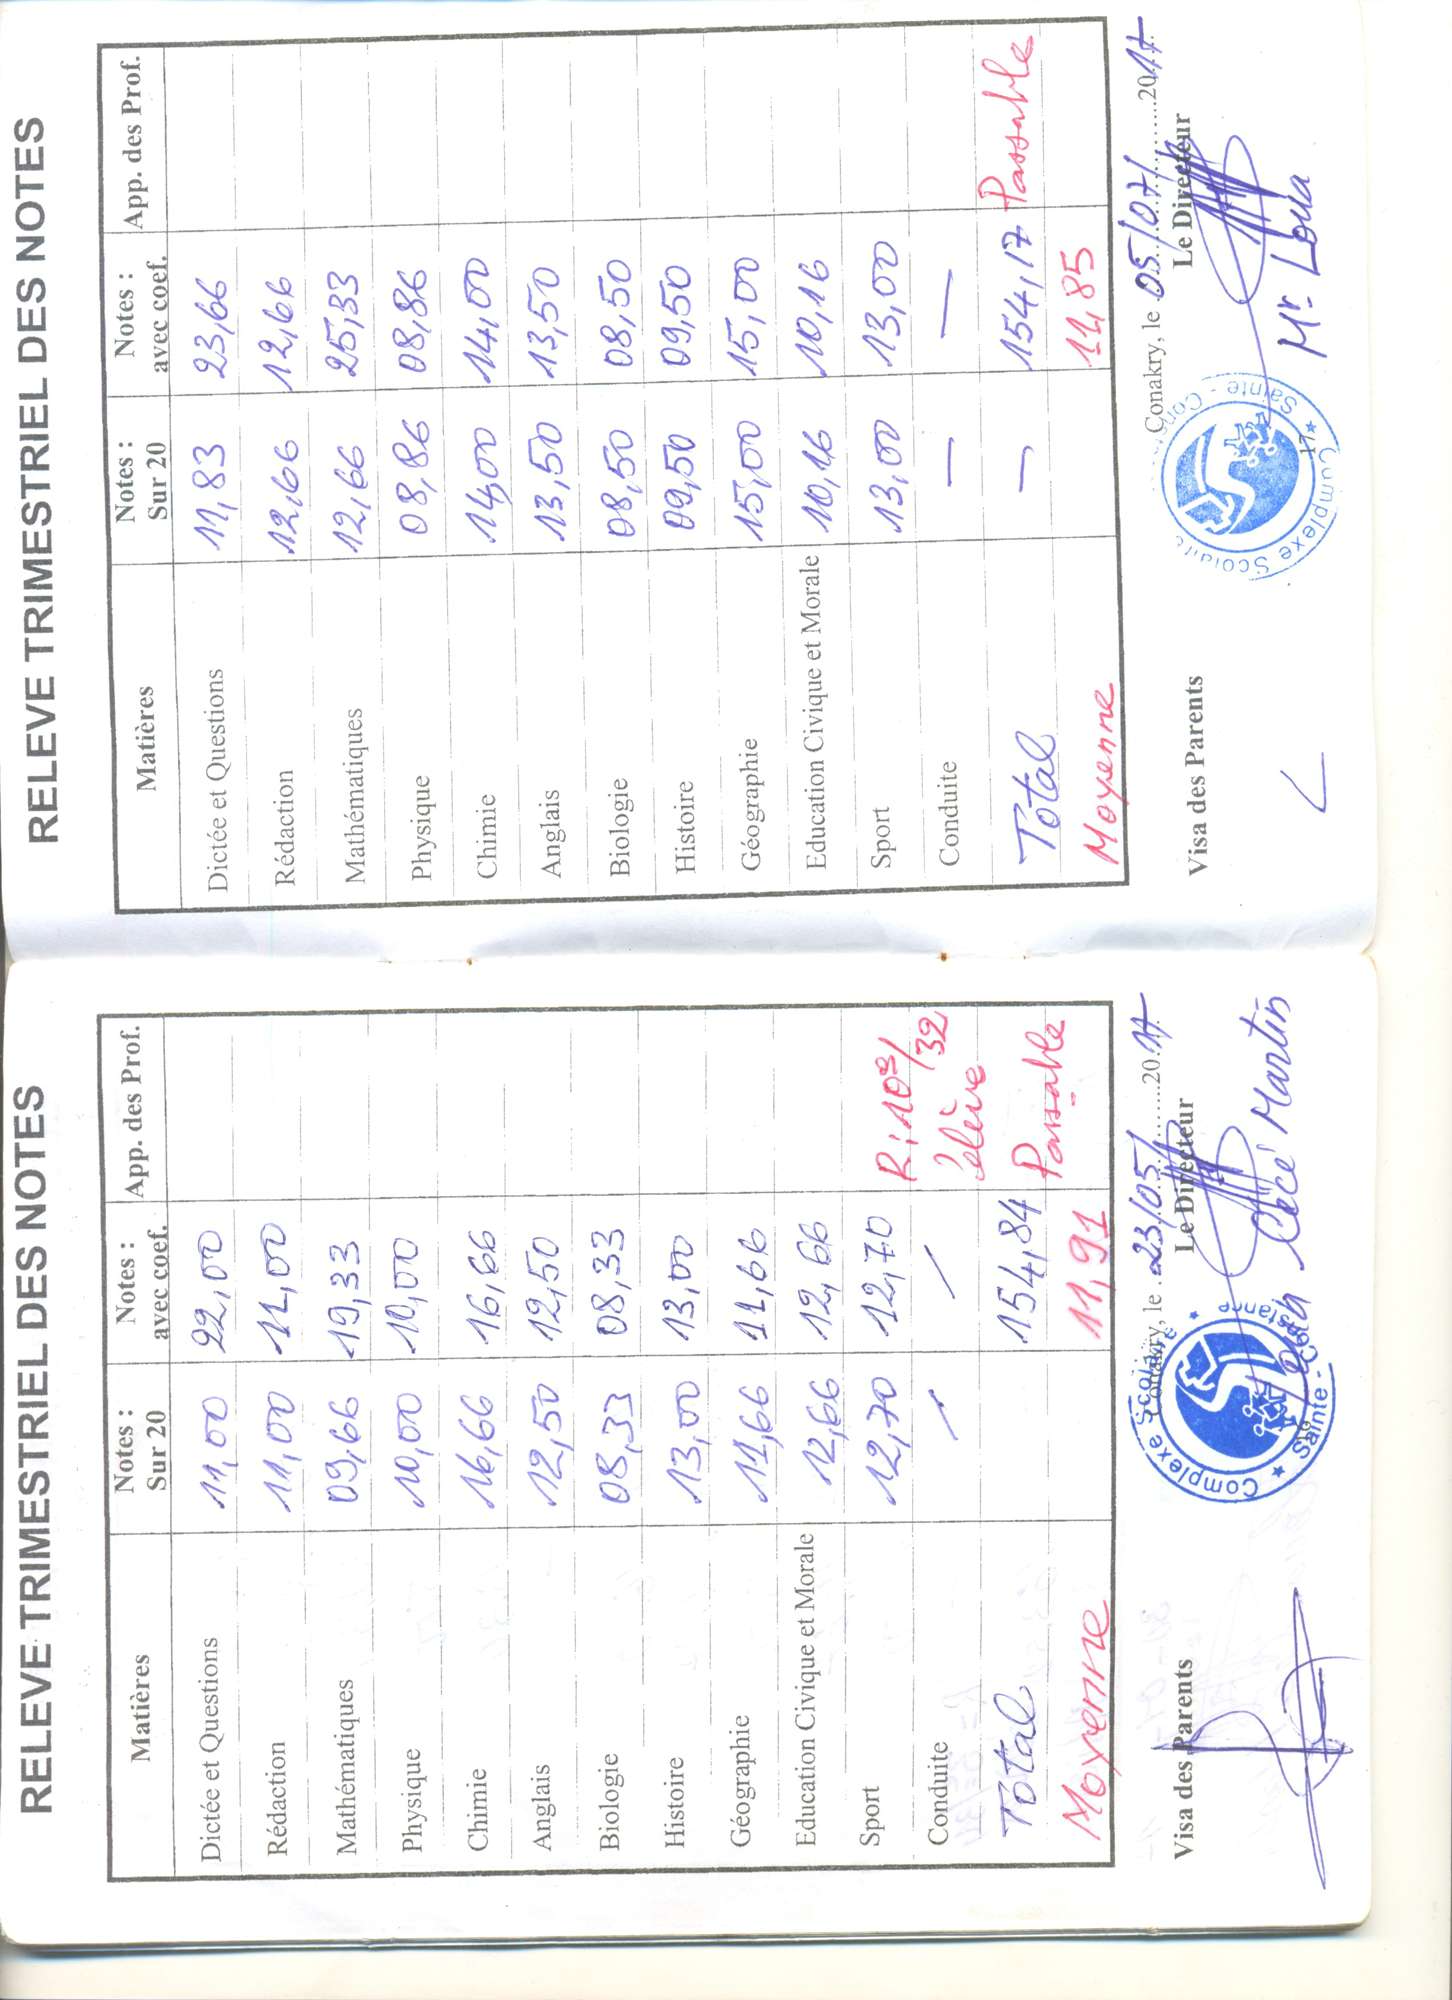 RELEVE TRIMESTRIEL DES NOTES
Matières Notes : Sur 20 Notes : avec coef. App. des Prof.
Dictée et Questions 11,00 22,00
Rédaction 11,00 11,00
Mathématiques 09,66 19,33
Physique 10,00 10,00
Chimie 16,66 16,66
Anglais 12,50 12,50
Biologie 08,33 08,33
Histoire 13,00 13,00
Géographie 11,66 11,66
Education Civique et Morale 12,66 12,66
Sport 12,70 12,70 R: 10e/32
Conduite élève
Total 154,84 Passable
Moyenne 11,91
Conakry, le 23/05/2017
Visa des Parents Le Directeur
Complexe Scolaire Sainte - Constance
16
Loua Cécé Martin
RELEVE TRIMESTRIEL DES NOTES
Matières Notes : Sur 20 Notes : avec coef. App. des Prof.
Dictée et Questions 11,83 23,66
Rédaction 12,66 12,66
Mathématiques 12,66 25,33
Physique 08,86 08,86
Chimie 14,00 14,00
Anglais 13,50 13,50
Biologie 08,50 08,50
Histoire 09,50 09,50
Géographie 15,00 15,00
Education Civique et Morale 10,16 10,16
Sport 13,00 13,00
Conduite — —
Total — 154,17 Passable
Moyenne 11,85
Conakry, le 05/07/2017
Visa des Parents Le Directeur
Complexe Scolaire Sainte - Con
17
Mr Loua